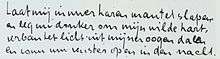 Laat mij in uwer haren mantel slapen
en leg uw donker om mijn wilde hart,
verban het licht uit mijne oogen dat
en som uw vensters open in den nacht.